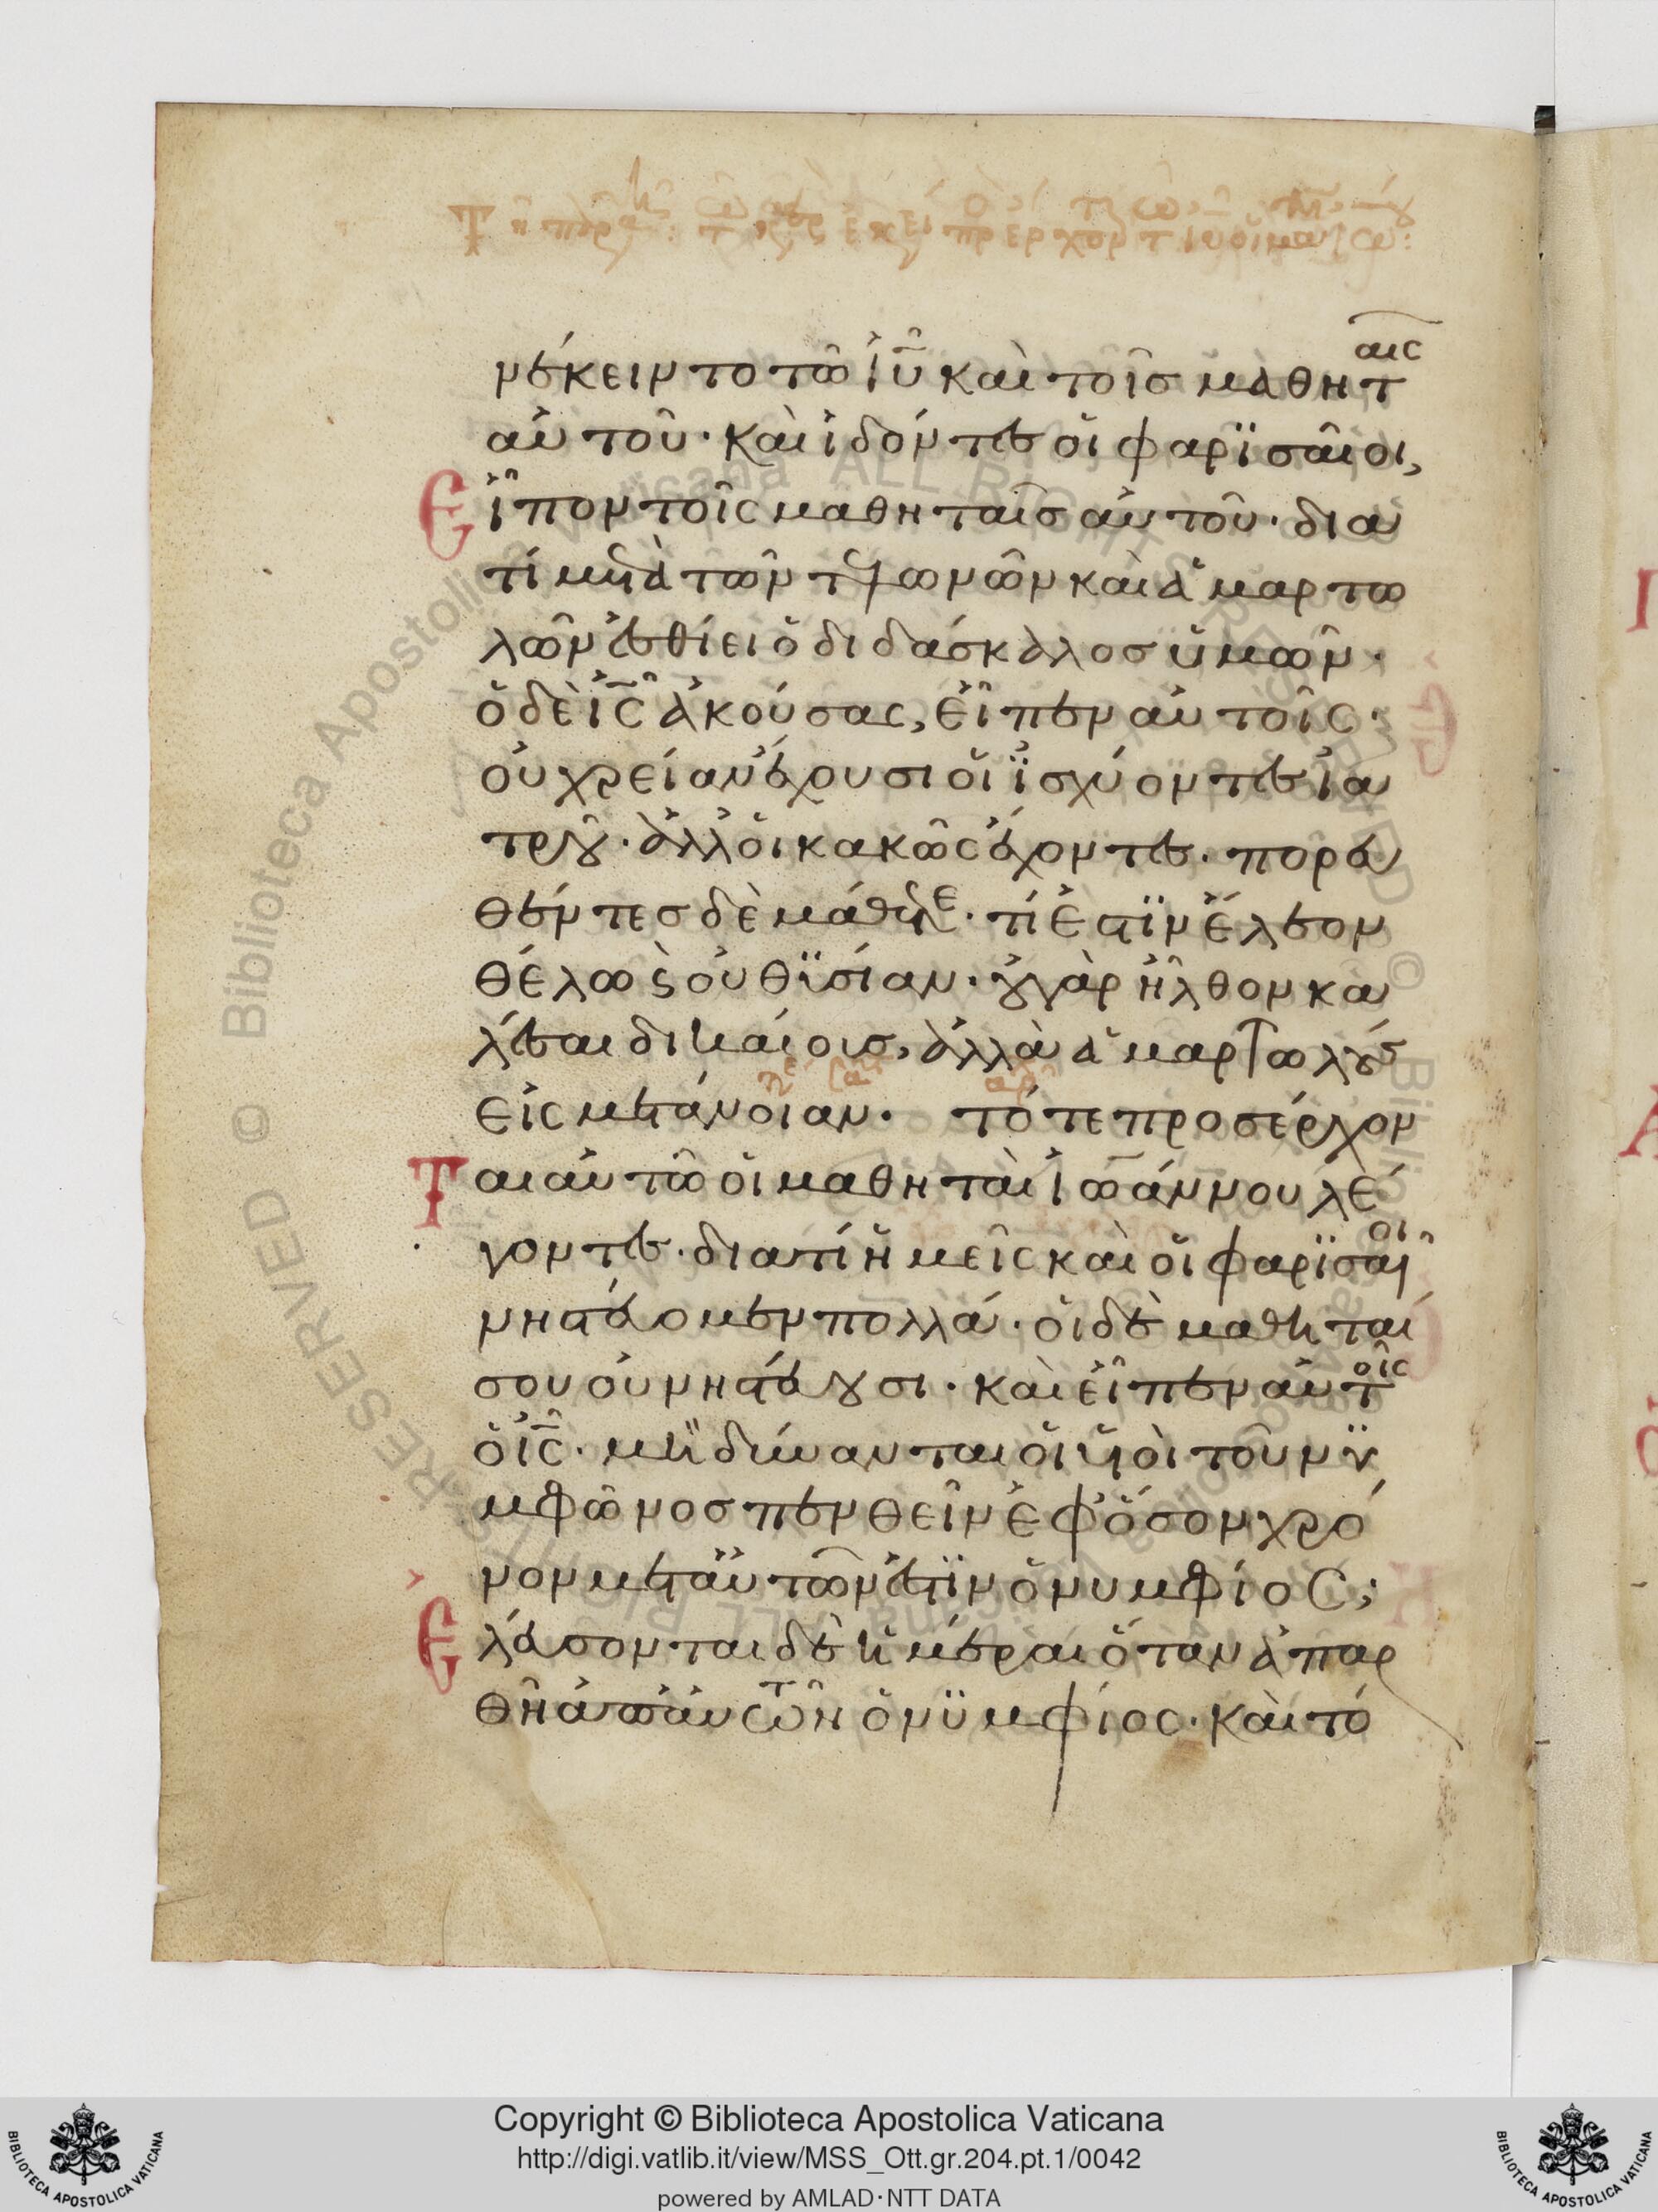 νέκειντο τῶ ἰῦ καὶ τοῖσ μαθηταῖς
αὐτοῦ· καὶ ἰδόντες οἱ φαρϊσαῖοι,
εἶπον τοῖς μαθηταῖσ αὐτοῦ· δια
τί μετὰ τῶν τελωνῶν καὶ ἁμαρτω
λῶν ἐσθίει ὁ διδάσκαλοσ ὑμῶν·
ὁ δὲ ἰς ἀκούσας, εἶπεν αὐτοῖς·
οὐ χρείαν ἔχουσι οἱ ἰσχύοντες ἰα
τροῦ· ἀλλ' οἱ κακῶς ἔχοντες· πορευ
θέντεσ δὲ μάθετε· τί ἐστϊν ἔλεον
θέλω ϗ οὐ θϋσίαν· οὐ γὰρ ἦλθον κα
λέσαι δικαίουσ, ἀλλὰ ἁμαρτωλούσ
εἰς μετάνοιαν· τότε προσέρχον
Ται αὐτῶ οἱ μαθηταὶ ἰωάννου λέ
γοντες· διατί ἡμεῖς καὶ οἱ φαρϊσαῖοι
νηστεύομεν πολλά· οἱ δὲ μαθηταί
σου οὐ νηστεύουσι· καὶ εἶπεν αὐτοῖς
ὁ ἰς· μὴ δύνανται οἱ υἱοὶ τοῦ νϋ
μφῶνοσ πενθεῖν ἐφ' ὅσον χρό
νον μετ' αὐτῶν ἐστϊν ὁ νυμφίος;
Ελεύσονται δὲ ἡμέραι ὅταν ἀπαρ
θῆ ἀπ' αὐτῶν ὁ νϋμφίος· καὶ τό
Biblioteca Apostolica Vaticana ALL RIGHTS RESERVED ©
Copyright © Biblioteca Apostolica Vaticana
http://digi.vatlib.it/view/MSS_Ott.gr.204.pt.1/0042
powered by AMLAD·NTT DATA
BIBLIOTECA APOSTOLICA VATICANA
BIBLIOTECA APOSTOLICA VATICANA